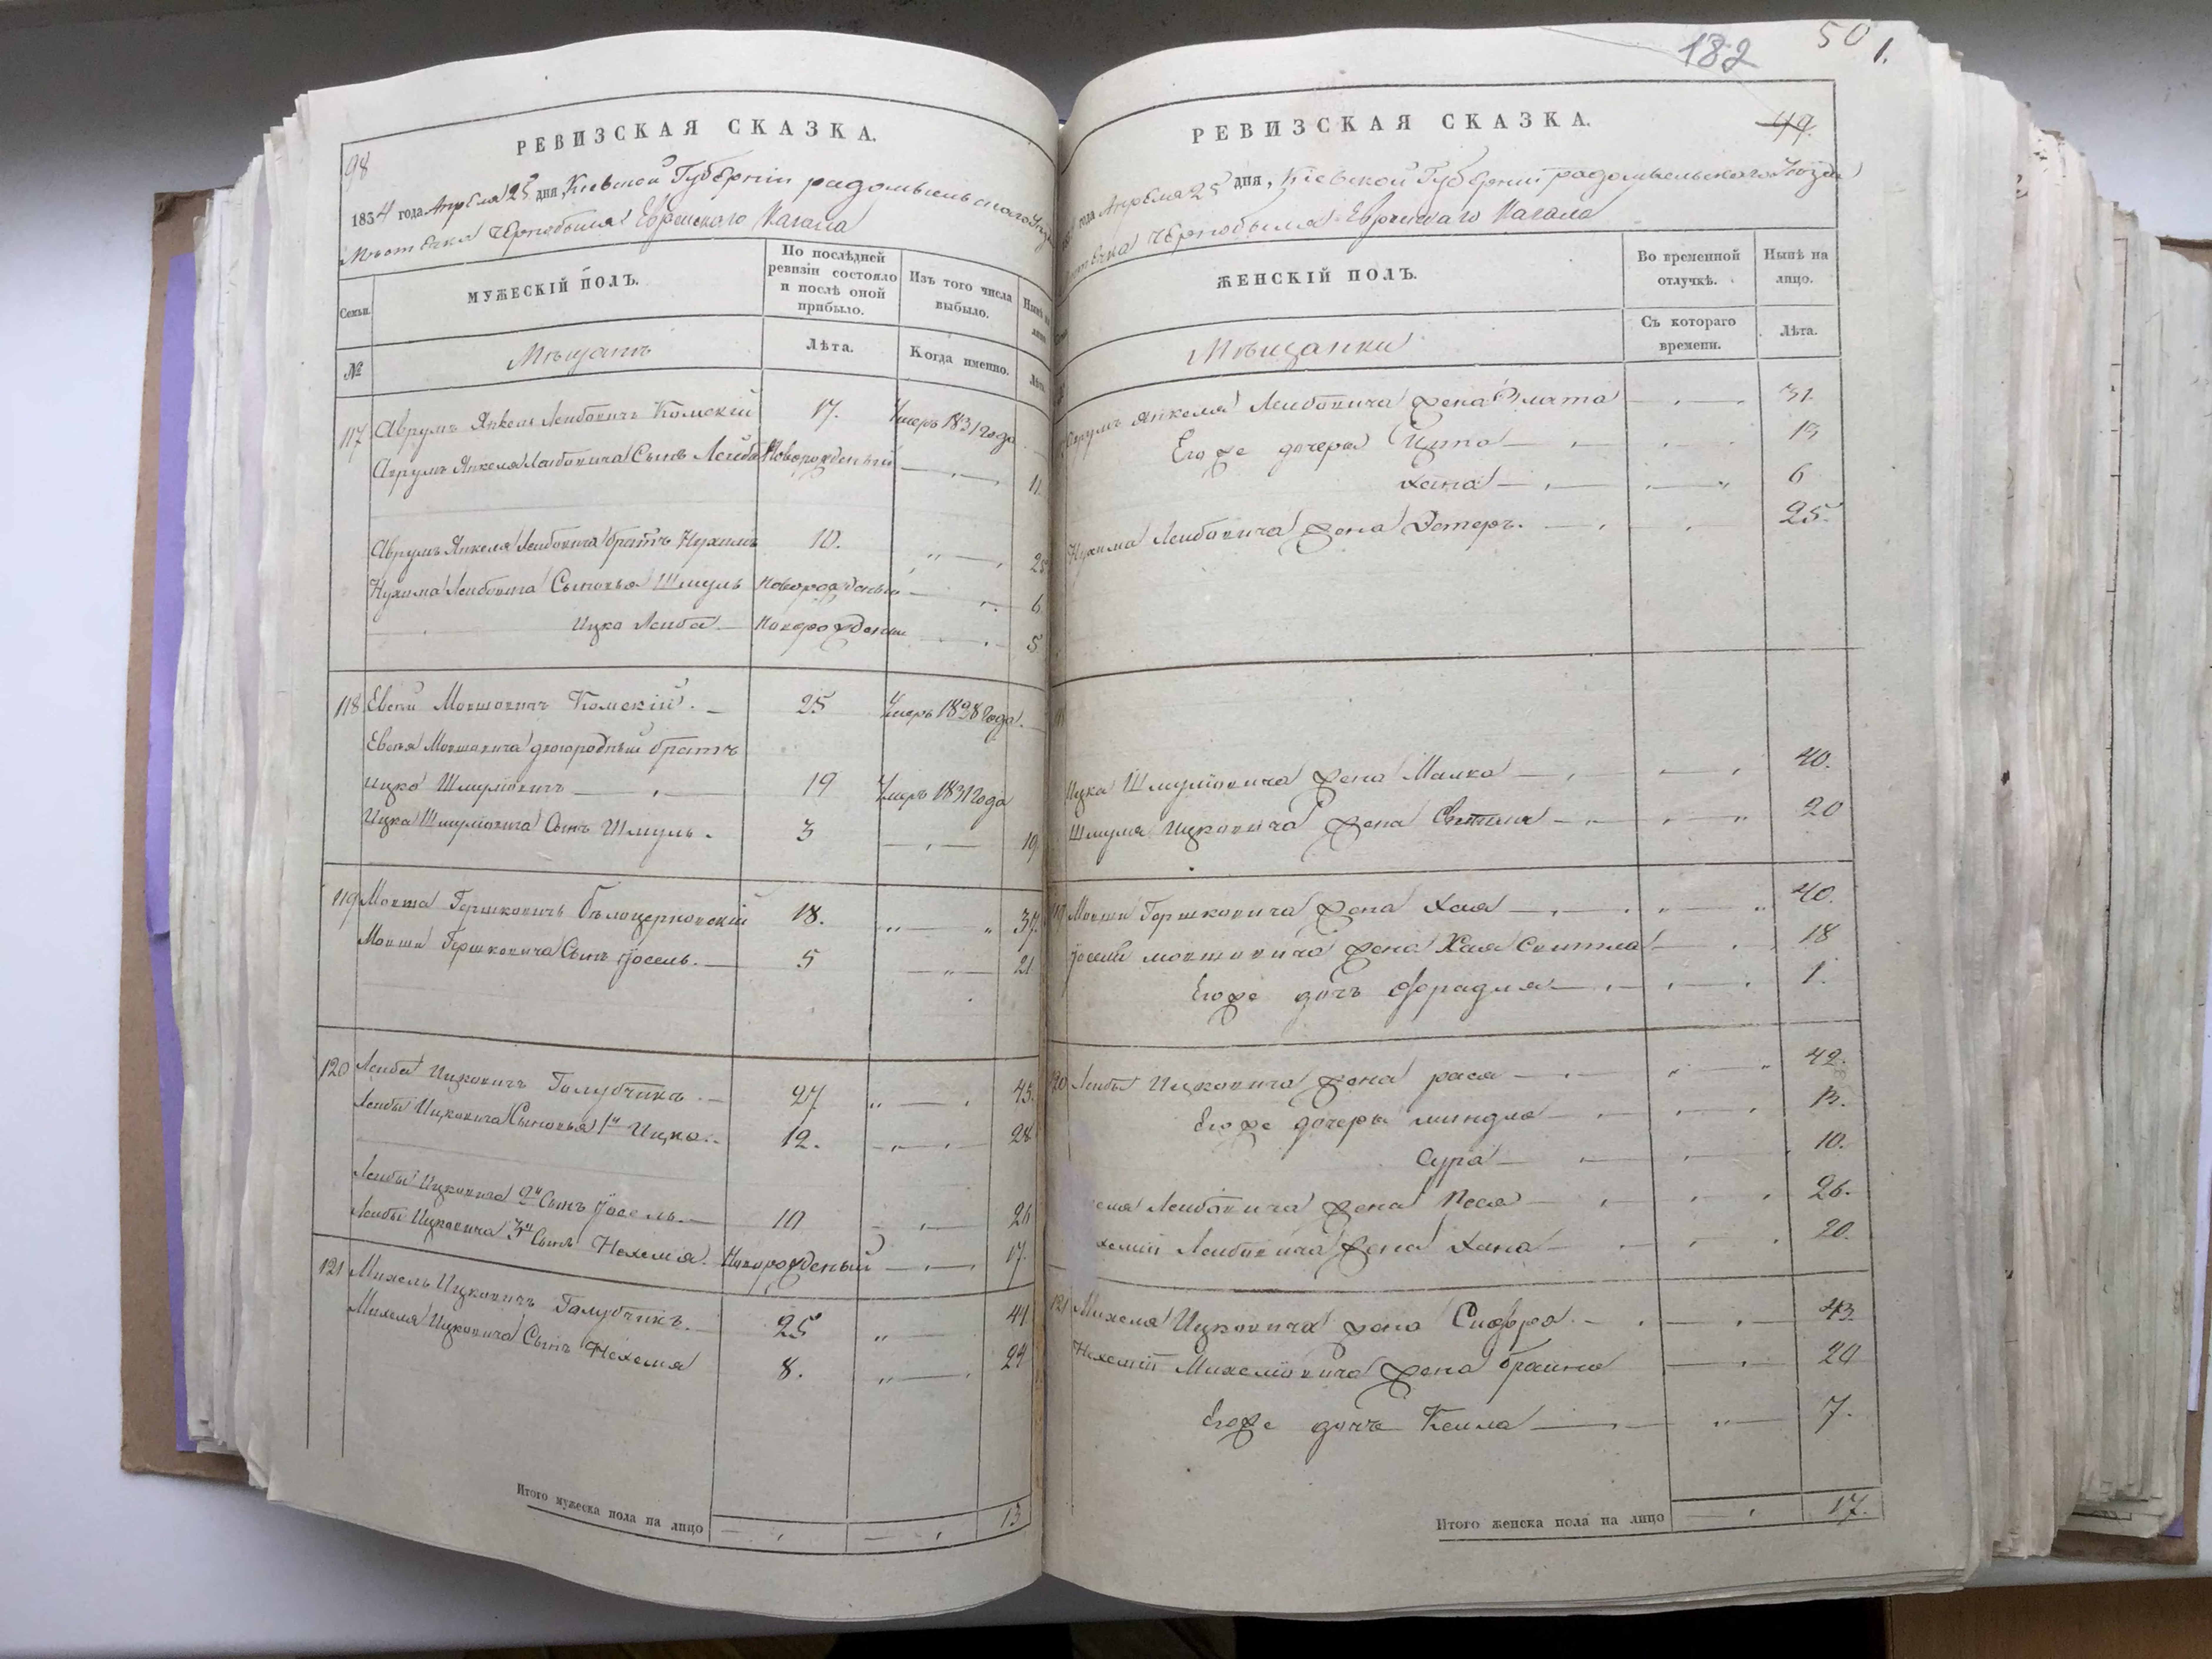 98
РЕВИЗСКАЯ СКАЗКА.
1834 года Апреля 25 дня, Кіевской Губерніи радомысльскаго
Мѣстечка Чернобыля Еврейскаго Кагала
Семьи.
МУЖЕСКІЙ ПОЛЪ.
По послѣдней ревизіи состояло и послѣ оной прибыло.
Изъ того числа выбыло.
№
Мѣщанъ
Лѣта.
Когда именно.
Лѣта.
117 Аврумъ Янкель Лейбовичъ Комскій 17. Умеръ 1831 года
Аврумъ Янкеля Лейбовича Сынъ Лейба Новорожденый 11
Аврумъ Янкеля Лейбовича братъ Нухимъ 10. 25
Нухима Лейбовича Сыновья Шмуль Новорожденый 6
Ицко Лейба Новорожденый 5
118 Евсей Мовшовичъ Комскій. 25 Умеръ 1828 года.
Евсея Мовшовича двоюродный братъ
Ицко Шмулiовичъ 19 Умеръ 1831 года
Ицка Шмулiовича Сынъ Шмуль. 3 19
119 Мовша Гершковичъ Бѣлоцерковскій 18. 37.
Мовши Гершковича Сынъ Іосель. 5 21
120 Лейба Ицковичъ Голубчикъ. 27 43.
Лейбы Ицковича Сыновья 1й Ицко. 12. 28
Лейбы Ицковича 2й Сынъ Іосель. 10 26
Лейбы Ицковича 3й Сынъ Нехемія. Новорожденый 17.
121 Михель Ицковичъ Голубчикъ. 25 41
Михеля Ицковича Сынъ Нехемія 8. 24
Итого мужеска пола на лицо 13
182
50
1.
49.
РЕВИЗСКАЯ СКАЗКА.
года Апреля 25 дня, Кіевской Губерніи радомысльскаго Уѣзда
Чернобыля Еврейскаго Кагала
ЖЕНСКІЙ ПОЛЪ.
Во временной отлучкѣ.
Нынѣ на лицо.
Мѣщанки
Съ котораго времени.
Лѣта.
Аврумъ Янкеля Лейбовича жена Злата 31.
Его же дочери Ципа 13
Хана 6
Нухима Лейбовича жена Эстеръ. 25.
Ицка Шмулiовича жена Малка 40.
Шмуля Ицковича жена 20
119 Мовши Гершковича жена Хая 40.
Іоселя мовшовича жена Хая Свитла 18
Его же дочь Фрадля 1.
120 Лейбы Ицковича жена раса 42.
Его же дочери миндля 13.
Сура 10.
Лейбовича жена Песя 26.
Лейбовича жена Хана 20.
121 Михеля Ицковича жена Сифра. 43.
Нехеміи Михелiовича жена браина 24
Его же дочь Кейла 7.
Итого женска пола на лицо 17.